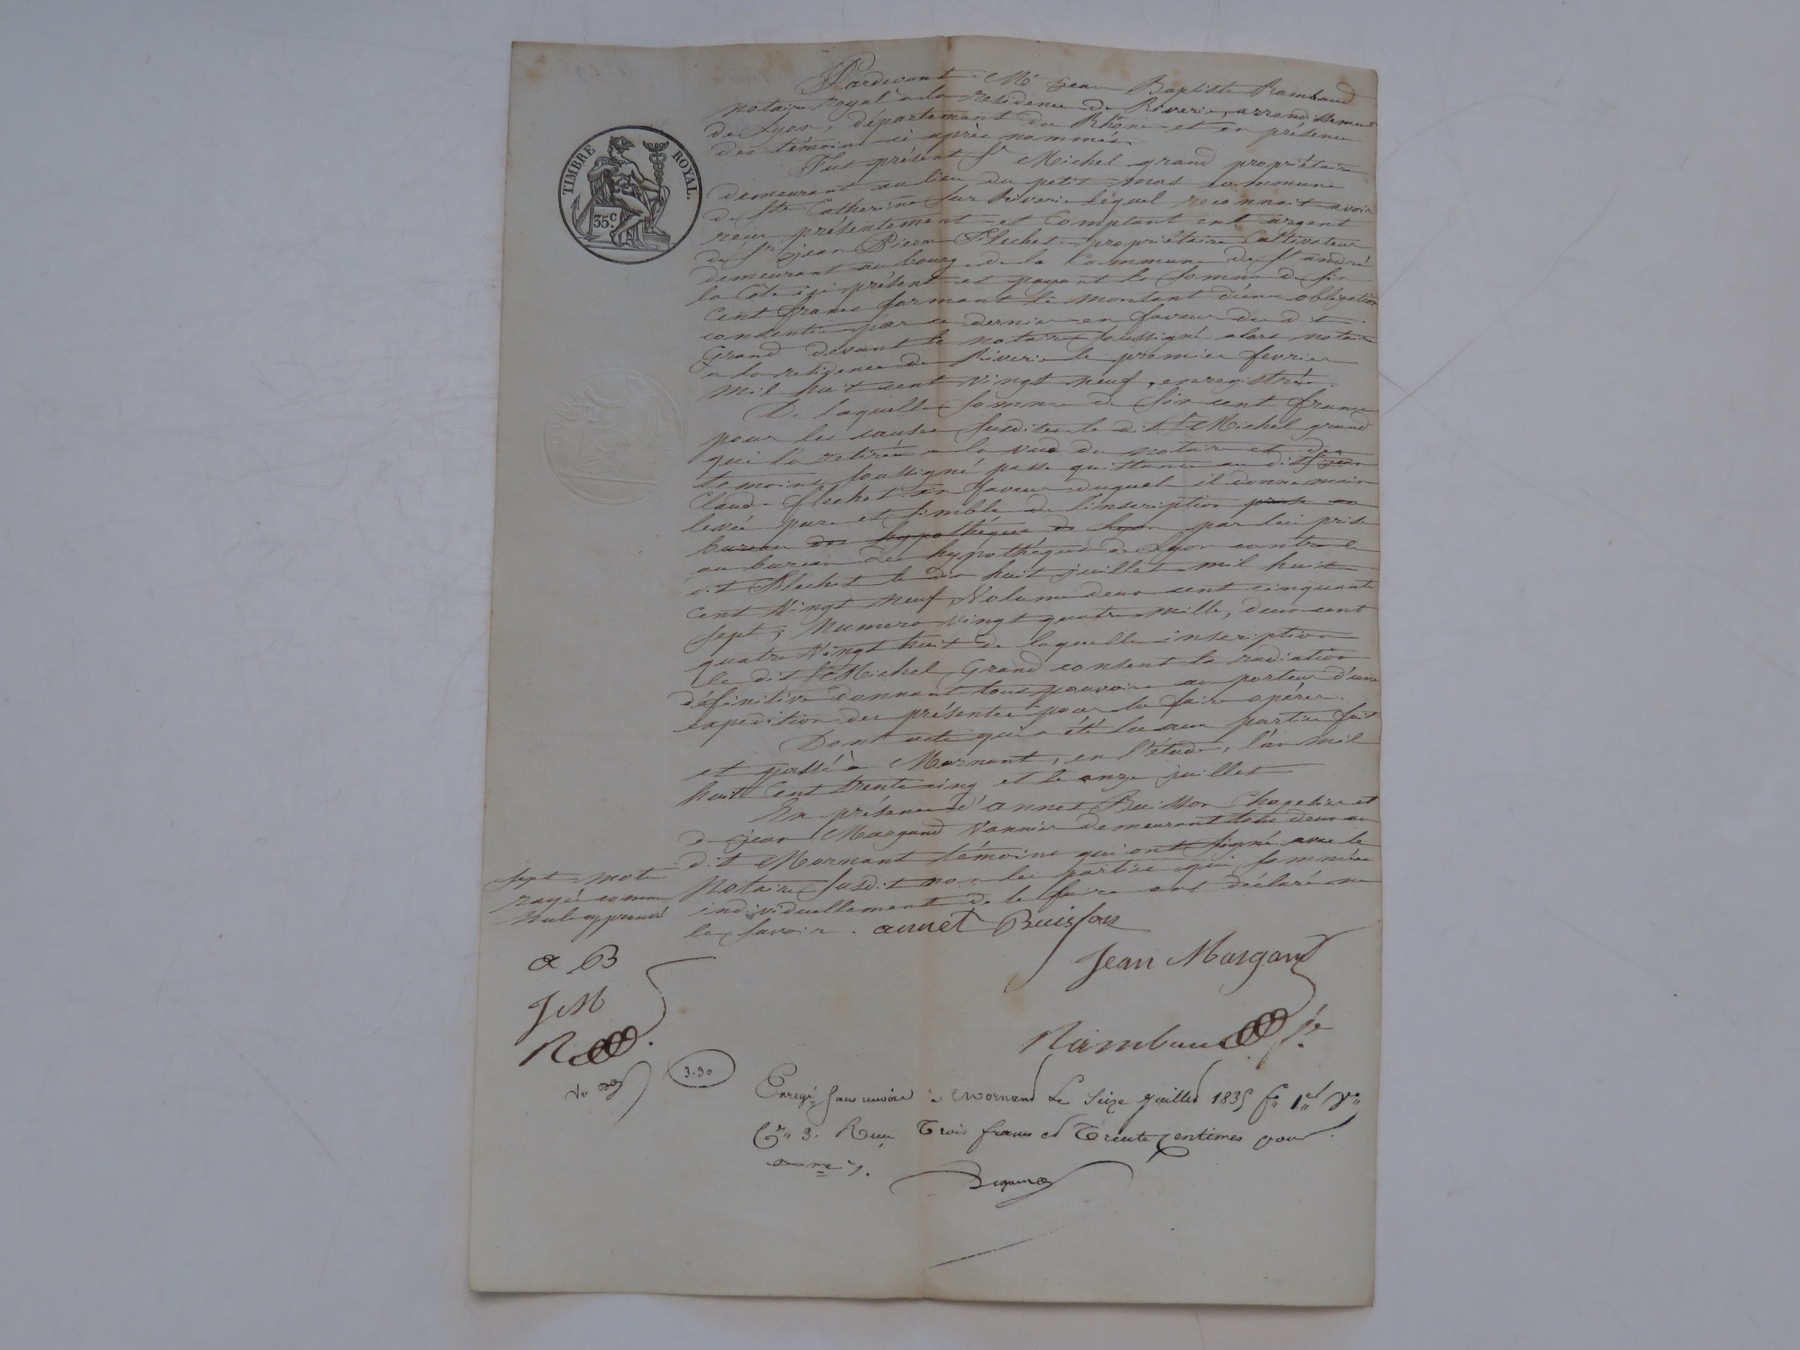 TIMBRE ROYAL.
35c.
Pardevant Me Jean Baptiste Rambaud
notaire royal à la résidence de Riverie, arrondissement
de Lyon, département du Rhône et en présence
des témoins ci après nommés.
Fut présent Sr Michel grand propriétaire
demeurant au lieu du petit mas commune
de Ste Catherine sur Riverie léquel reconnait avoir
reçu présentement et Comptant en argent
de Sr Jean Pierre Flechet propriétaire Cultivateur
demeurant au bourg de la Commune de St andré
la Côte ici présent et payant la somme de six
cent francs formant le montant d'une obligation
consentie par ce dernier en faveur du dit
Grand devant le notaire soussigné alors notaire
à la résidence de Riverie le premier fevrier
mil huit cent vingt neuf, enregistrée.
De laquelle somme de six cent francs
pour les causes susdites le dit Sr Michel grand
qui l'a retirée à la vue du notaire et des
temoins soussigné passe quittance au dit Jean
Claude Flechet en faveur duquel il donne main
levée pure et simple de l'inscription prise au
bureau des hypothèques de Lyon par lui prise
au bureau des hypothèques de Lyon contre le
dit Flechet le dix huit juillet mil huit
cent vingt neuf, Volume deux cent cinquante
sept, Numero vingt quatre mille, deux cent
quatre vingt huit de laquelle inscription
le dit Sr Michel Grand consent la radiation
définitive donnant tout pouvoir au porteur d'une
expedition des présentes pour la faire opérer.
Dont acte qui a été lu aux parties fait
et passé à Mornant, en l'étude, l'an mil
huit Cent trente cinq et le onze juillet
En présence d'annet Buisson Chapelier et
de jean Margand Vannier demeurant tous deux au
dit Mornant témoins qui ont signé avec le
Notaire susdit non les parties qui sommées
individuellement de le faire ont déclaré ne
le savoir.
annet Buisson
Jean Margand
Rambaud
sept mots
rayés comme
nuls approuvé
a B
J M
R
3.30
Enregé sans renvoi à Mornant Le seize juillet 1835 fo 1er Vo
Ce 3. Reçu Trois francs et Trente Centimes pour